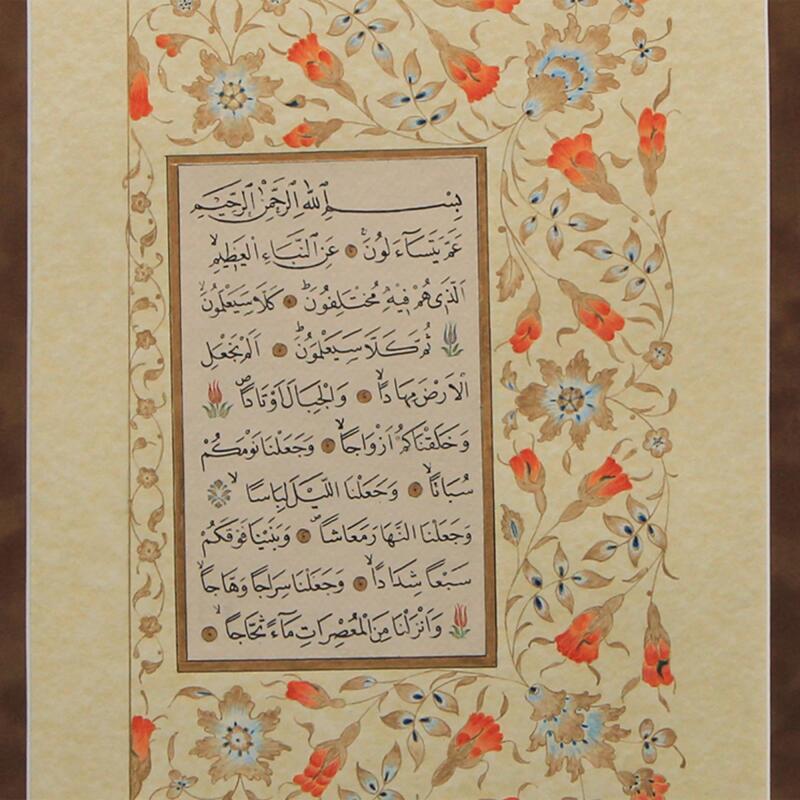 بِسْمِ اللّٰهِ الرَّحْمٰنِ الرَّحٖيمِ
عَمَّ يَتَسَٓاءَلُونَۚ عَنِ النَّبَاِ الْعَظٖيمِۙ
اَلَّذٖى هُمْ فٖيهِ مُخْتَلِفُونَۜ كَلَّا سَيَعْلَمُونَۙ
ثُمَّ كَلَّا سَيَعْلَمُونَۜ اَلَمْ نَجْعَلِ
الْاَرْضَ مِهَادًاۙ وَالْجِبَالَ اَوْتَادًاۖ
وَخَلَقْنَاكُمْ اَزْوَاجًاۙ وَجَعَلْنَا نَوْمَكُمْ
سُبَاتًاۙ وَجَعَلْنَا الَّيْلَ لِبَاسًاۙ
وَجَعَلْنَا النَّهَارَ مَعَاشًاۖ وَبَنَيْنَا فَوْقَكُمْ
سَبْعًا شِدَادًاۙ وَجَعَلْنَا سِرَاجًا وَهَّاجًاۙ
وَاَنْزَلْنَا مِنَ الْمُعْصِرَاتِ مَٓاءً ثَجَّاجًاۙ